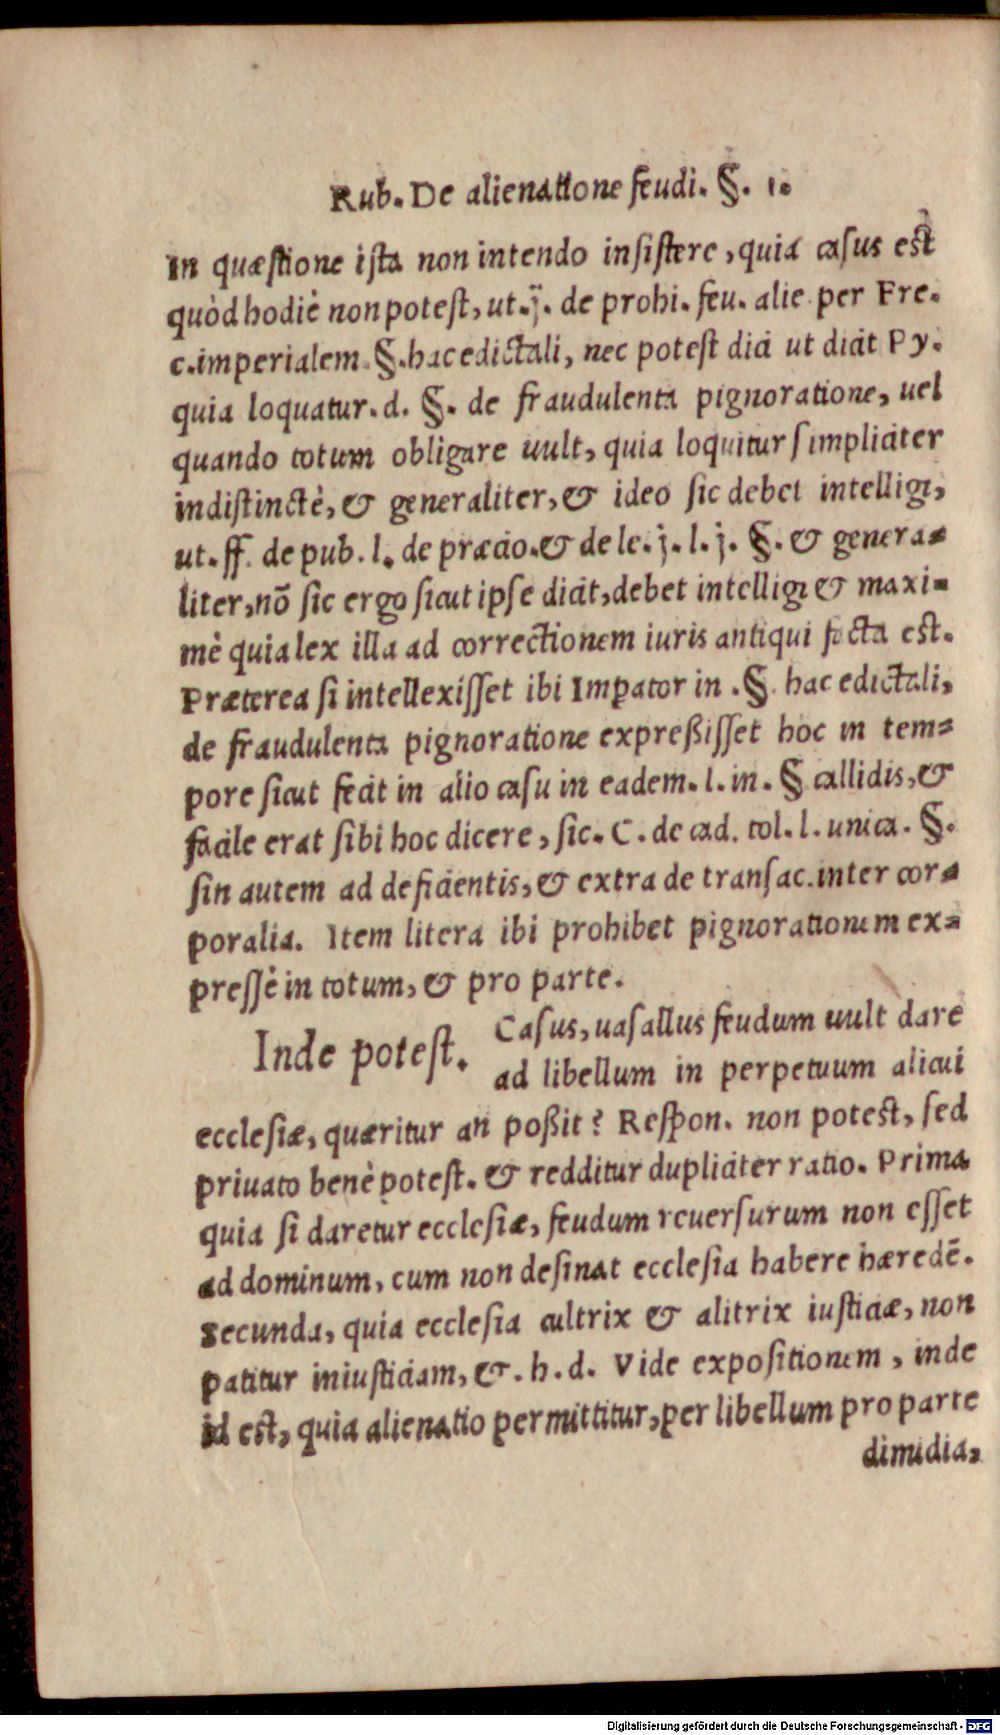 Rub. De alienatione feudi. §. 1.
In quæstione ista non intendo insistere, quia casus est
quòd hodiè non potest, ut. j̈. de prohi. feu. alie. per Fre.
c. imperialem. §. hac edictali, nec potest dici ut dicit Py.
quia loquatur. d. §. de fraudulenta pignoratione, uel
quando totum obligare uult, quia loquitur simpliciter
indistinctè, & generaliter, & ideo sic debet intelligi,
ut. ff. de pub. l. de precio. & de le. j. l. j. §. & genera=
liter, nõ sic ergo sicut ipse dicit, debet intelligi & maxi=
mè quia lex illa ad correctionem iuris antiqui facta est.
Præterea si intellexisset ibi Imꝑator in .§. hac edictali,
de fraudulenta pignoratione expreßisset hoc in tem=
pore sicut fecit in alio casu in eadem. l. in. § callidis, &
facile erat sibi hoc dicere, sic. C. de cad. tol. l. unica. §.
sin autem ad deficientis, & extra de transac. inter cor=
poralia. Item litera ibi prohibet pignorationem ex=
pressè in totum, & pro parte.
Inde potest. Casus, uasallus feudum uult dare
ad libellum in perpetuum alicui
ecclesiæ, quæritur an poßit? Respon. non potest, sed
priuato benè potest. & redditur dupliciter ratio. Prima
quia si daretur ecclesiæ, feudum reuersurum non esset
ad dominum, cum non desinat ecclesia habere hæredẽ.
Secunda, quia ecclesia cultrix & alitrix iusticiæ, non
patitur iniusticiam, &. h. d. Vide expositionem, inde
id est, quia alienatio permittitur, per libellum pro parte
dimidia,
Digitalisierung gefördert durch die Deutsche Forschungsgemeinschaft - DFG